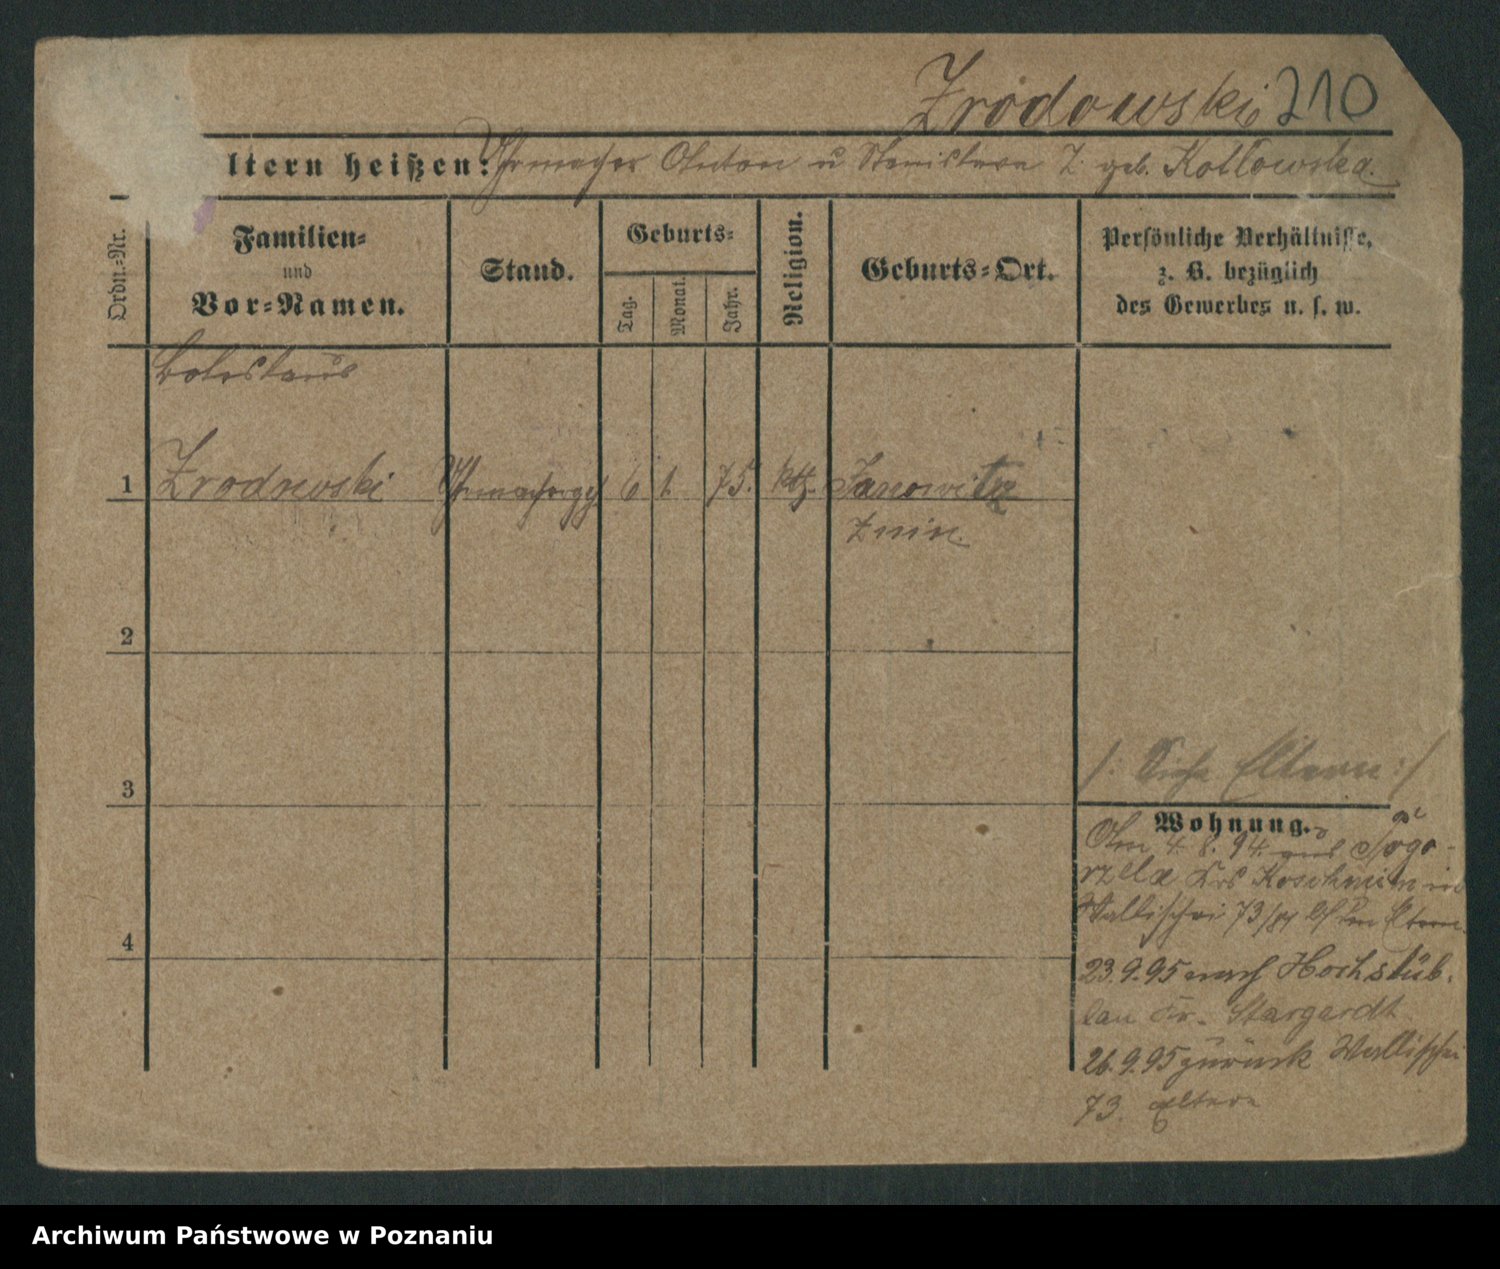 Zrodowski 210
ltern heißen: Uhrmacher Anton u Stanislawa Z. geb. Kotlowska.
Ordn.-Nr.
Familien-
und
Vor-Namen.
Stand.
Geburts-
Tag.
Monat.
Jahr.
Religion.
Geburts-Ort.
Persönliche Verhältnisse,
z. B. bezüglich
des Gewerbes u. s. w.
Boleslaus
1 Zrodowski Uhrmachergeh 6 1. 75. kth. Janowitz
Znin.
2
3
4
/: Siehe Eltern :/
Wohnung.
Am 4. 8. 94. aus Pogo-
rzela Krs Koschmin in
Wallischei 73/74 bei den Eltern
23.9.95 nach Hochstüb-
lau Kr. Stargardt
26.9.95 zurück Wallischei
73. Eltern
Archiwum Państwowe w Poznaniu